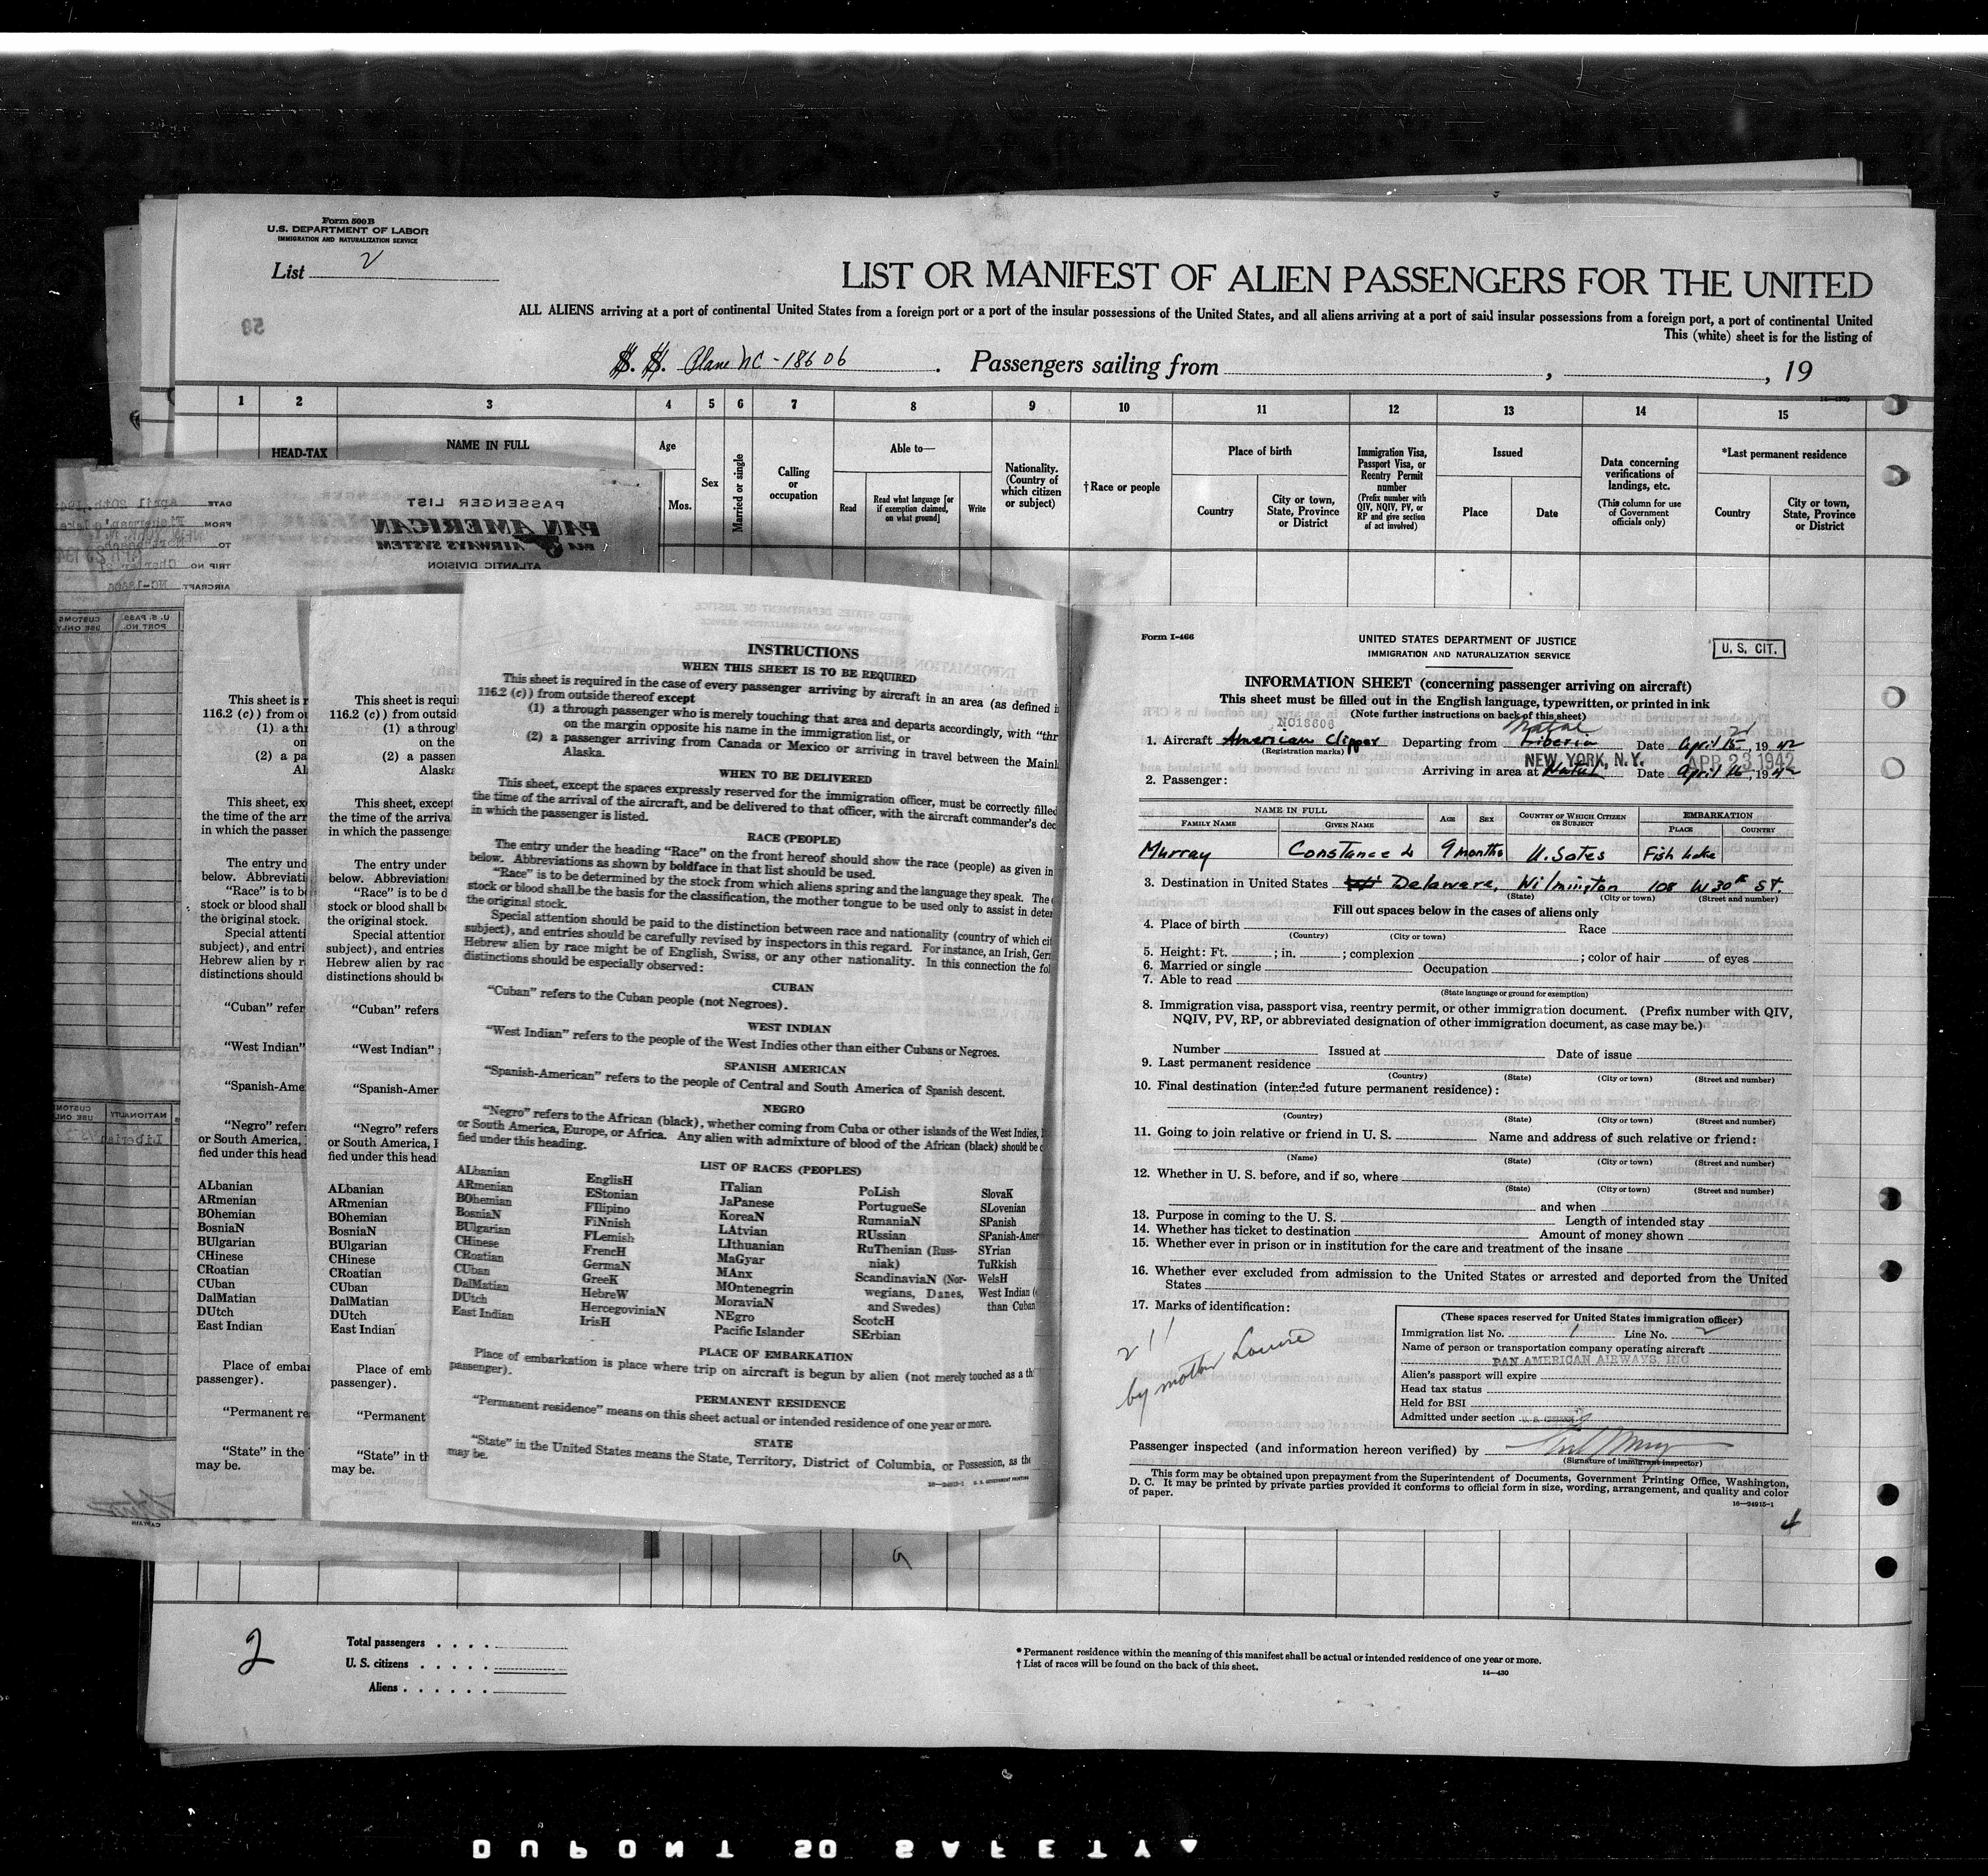 Form 500B
U.S. DEPARTMENT OF LABOR
IMMIGRATION AND NATURALIZATION SERVICE
List 2
LIST OR MANIFEST OF ALIEN PASSENGERS FOR THE UNITED
ALL ALIENS arriving at a port of continental United States from a foreign port or a port of the insular possessions of the United States, and all aliens arriving at a port of said insular possessions from a foreign port, a port of continental United
This (white) sheet is for the listing of
S. S. Plane NC-18606. Passengers sailing from , , 19
1 2 3 4 5 6 7 8 9 10 11 12 13 14 15
HEAD-TAX
NAME IN FULL
Age
Mos.
Sex
Married or single
Calling or occupation
Able to—
Read
Read what language [or if exemption claimed, on what ground]
Write
Nationality. (Country of which citizen or subject)
†Race or people
Place of birth
Country
City or town, State, Province or District
Immigration Visa, Passport Visa, or Reentry Permit number
(Prefix number with QIV, NQIV, PV, or RP and give section of act involved)
Issued
Place
Date
Data concerning verifications of landings, etc.
(This column for use of Government officials only)
*Last permanent residence
Country
City or town, State, Province or District
PASSENGER LIST
PAN AMERICAN
AIRWAYS SYSTEM
ATLANTIC DIVISION
DATE April 20th,
FROM Fisherman's Lake
TO
TRIP NO
AIRCRAFT NC-18606
U. S. PASS-PORT NO.
CUSTOMS USE ONLY
NATIONALITY
CUSTOMS USE ONLY
Liberian
CAPTAIN
INSTRUCTIONS
WHEN THIS SHEET IS TO BE REQUIRED
This sheet is required in the case of every passenger arriving by aircraft in an area (as defined i
116.2 (c)) from outside thereof except
(1) a through passenger who is merely touching that area and departs accordingly, with "thr
on the margin opposite his name in the immigration list, or
(2) a passenger arriving from Canada or Mexico or arriving in travel between the Mainl
Alaska.
WHEN TO BE DELIVERED
This sheet, except the spaces expressly reserved for the immigration officer, must be correctly filled
the time of the arrival of the aircraft, and be delivered to that officer, with the aircraft commander's dec
in which the passenger is listed.
RACE (PEOPLE)
The entry under the heading "Race" on the front hereof should show the race (people) as given in
below. Abbreviations as shown by boldface in that list should be used.
"Race" is to be determined by the stock from which aliens spring and the language they speak. The
stock or blood shall be the basis for the classification, the mother tongue to be used only to assist in deter
the original stock.
Special attention should be paid to the distinction between race and nationality (country of which cit
subject), and entries should be carefully revised by inspectors in this regard. For instance, an Irish, Ger
Hebrew alien by race might be of English, Swiss, or any other nationality. In this connection the fol
distinctions should be especially observed:
CUBAN
"Cuban" refers to the Cuban people (not Negroes).
WEST INDIAN
"West Indian" refers to the people of the West Indies other than either Cubans or Negroes.
SPANISH AMERICAN
"Spanish-American" refers to the people of Central and South America of Spanish descent.
NEGRO
"Negro" refers to the African (black), whether coming from Cuba or other islands of the West Indies,
or South America, Europe, or Africa. Any alien with admixture of blood of the African (black) should be c
fied under this heading.
LIST OF RACES (PEOPLES)
ALbanian
ARmenian
BOhemian
BosniaN
BUlgarian
CHinese
CRoatian
CUban
DalMatian
DUtch
East Indian
EnglisH
EStonian
FIlipino
FiNnish
FLemish
FrencH
GermaN
GreeK
HebreW
HercegoviniaN
IrisH
ITalian
JaPanese
KoreaN
LAtvian
LIthuanian
MaGyar
MAnx
MOntenegrin
MoraviaN
NEgro
Pacific Islander
PoLish
PortugueSe
RumaniaN
RUssian
RuThenian (Russ-
niak)
ScandinaviaN (Nor-
wegians, Danes,
and Swedes)
ScotcH
SErbian
SlovaK
SLovenian
SPanish
SPanish-Amer
SYrian
TuRkish
WelsH
West Indian (
than Cuban
PLACE OF EMBARKATION
Place of embarkation is place where trip on aircraft is begun by alien (not merely touched as a th
passenger).
PERMANENT RESIDENCE
"Permanent residence" means on this sheet actual or intended residence of one year or more.
STATE
"State" in the United States means the State, Territory, District of Columbia, or Possession, as the
may be.
Form I-466
UNITED STATES DEPARTMENT OF JUSTICE
IMMIGRATION AND NATURALIZATION SERVICE
U. S. CIT.
INFORMATION SHEET (concerning passenger arriving on aircraft)
This sheet must be filled out in the English language, typewritten, or printed in ink
(Note further instructions on back of this sheet)
NC18606 Natal 21
1. Aircraft American Clipper Departing from Liberia Date April 15, 1942
(Registration marks)
NEW YORK, N.Y. APR 23 1942
Arriving in area at Natal Date April 16, 1942
2. Passenger:
NAME IN FULL
FAMILY NAME
GIVEN NAME
AGE
SEX
COUNTRY OF WHICH CITIZEN OR SUBJECT
EMBARKATION
PLACE
COUNTRY
Murray Constance L 9 months U. Sates Fish Lake
3. Destination in United States Delaware, Wilmington 108 W 30th St.
(State) (City or town) (Street and number)
Fill out spaces below in the cases of aliens only
4. Place of birth Race
(Country) (City or town)
5. Height: Ft. ; in. ; complexion ; color of hair of eyes
6. Married or single Occupation
7. Able to read
(State language or ground for exemption)
8. Immigration visa, passport visa, reentry permit, or other immigration document. (Prefix number with QIV,
NQIV, PV, RP, or abbreviated designation of other immigration document, as case may be.)
Number Issued at Date of issue
9. Last permanent residence
(Country) (State) (City or town) (Street and number)
10. Final destination (intended future permanent residence):
(Country) (State) (City or town) (Street and number)
11. Going to join relative or friend in U. S. Name and address of such relative or friend:
(Name) (State) (City or town) (Street and number)
12. Whether in U. S. before, and if so, where
(State) (City or town) (Street and number)
and when
13. Purpose in coming to the U. S. Length of intended stay
14. Whether has ticket to destination Amount of money shown
15. Whether ever in prison or in institution for the care and treatment of the insane
16. Whether ever excluded from admission to the United States or arrested and deported from the United
States
17. Marks of identification:
by mother Louise
(These spaces reserved for United States immigration officer)
Immigration list No. 1 Line No. 2
Name of person or transportation company operating aircraft
PAN AMERICAN AIRWAYS, INC
Alien's passport will expire
Head tax status
Held for BSI
Admitted under section U. S. CITIZEN
Passenger inspected (and information hereon verified) by
(Signature of immigrant inspector)
This form may be obtained upon prepayment from the Superintendent of Documents, Government Printing Office, Washington,
D. C. It may be printed by private parties provided it conforms to official form in size, wording, arrangement, and quality and color
of paper.
16—24915-1
2
Total passengers
U. S. citizens
Aliens
* Permanent residence within the meaning of this manifest shall be actual or intended residence of one year or more.
† List of races will be found on the back of this sheet.
14—430
DUPONT SO SAFETY